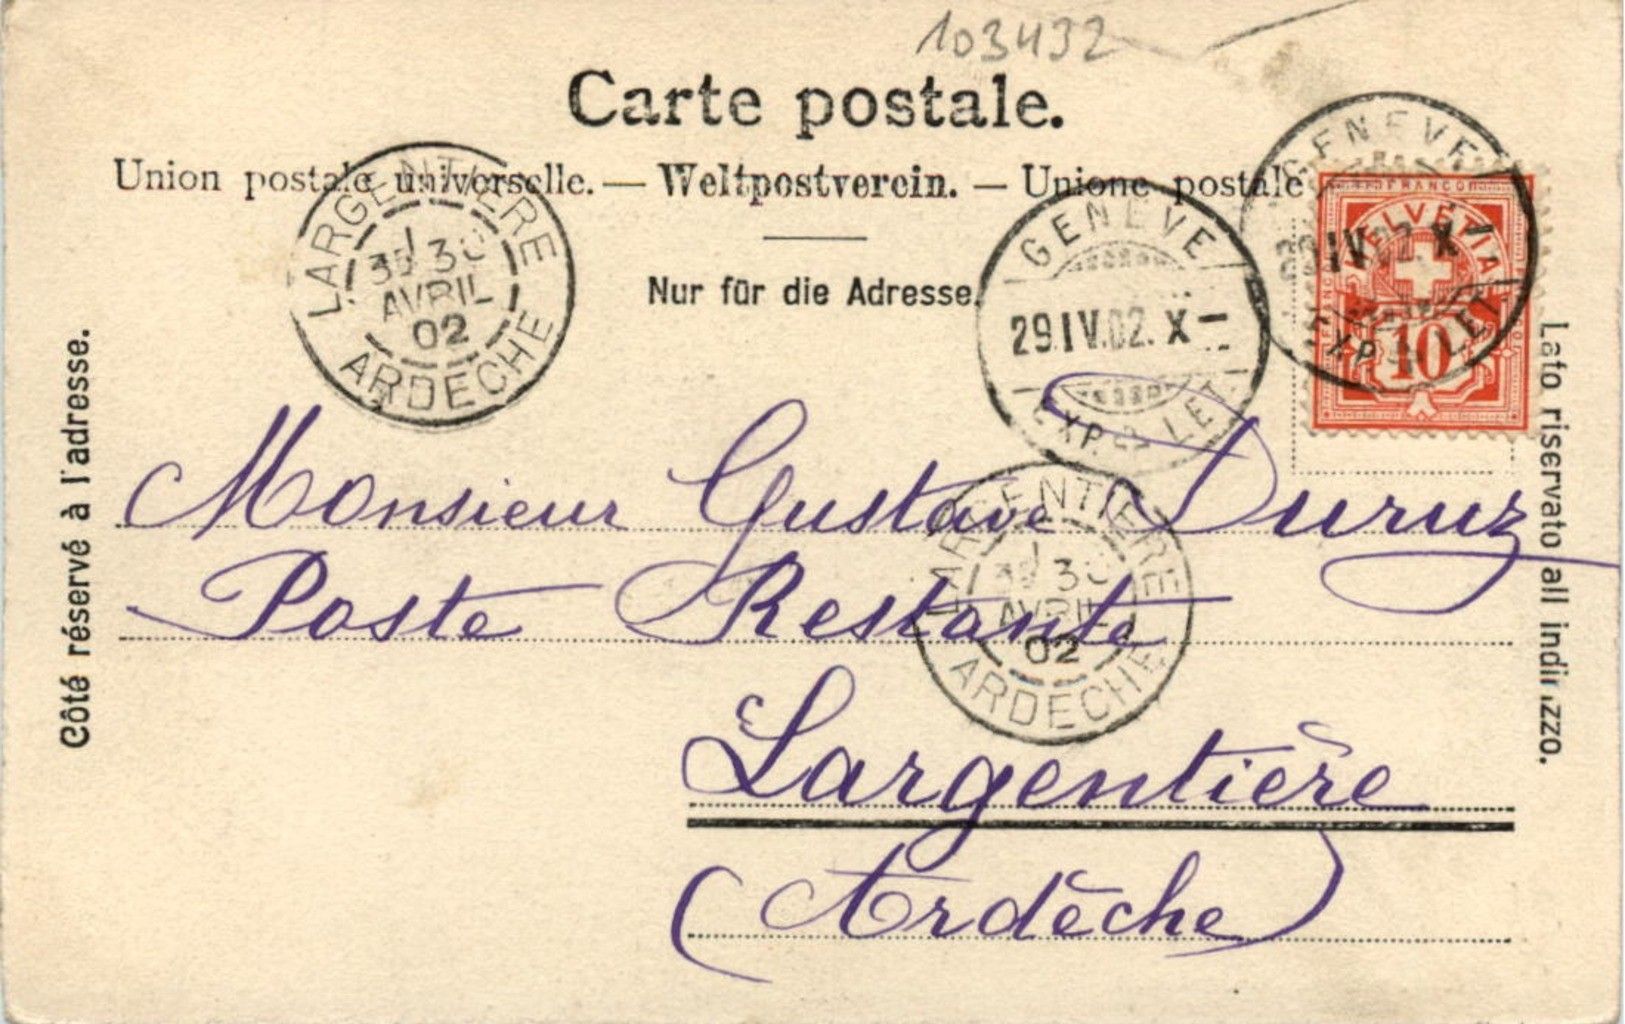 103432
Carte postale.
Union postale universelle. — Weltpostverein. — Unione postale
Nur für die Adresse.
Côté réservé à l'adresse.
Lato riservato all indirizzo.
LARGENTIERE
30
AVRIL
02
ARDECHE
GENEVE
29.IV.02. X–
EXP. LET.
GENEVE
29.IV.02. X
EXP. LET.
FRANCO
HELVETIA
10
Monsieur Gustave Duruz
Poste Restante
LARGENTIERE
30
AVRIL
02
ARDECHE
Largentière
(Ardèche)